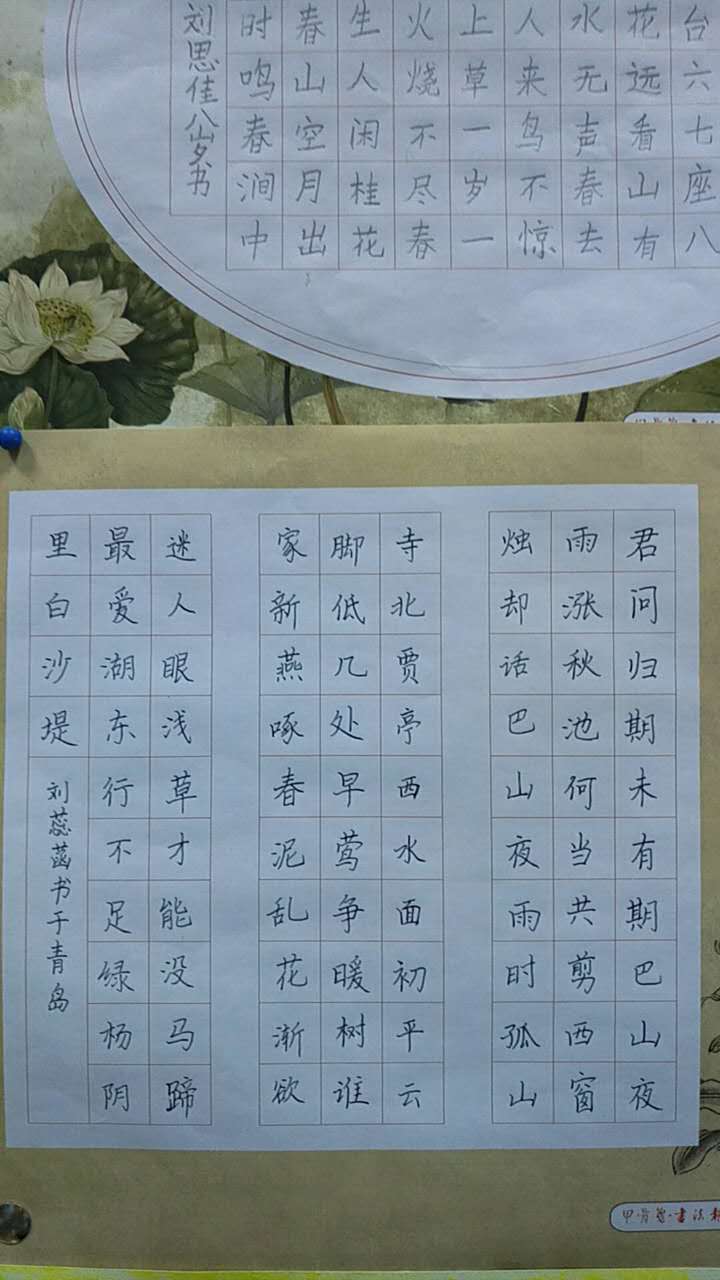 台六七座八
花远看山有
水无声春去
人来鸟不惊
上草一岁一
火烧不尽春
生人闲桂花
春山空月出
时鸣春涧中
刘思佳八岁书
君问归期未有期巴山夜
雨涨秋池何当共剪西窗
烛却话巴山夜雨时孤山
寺北贾亭西水面初平云
脚低几处早莺争暖树谁
家新燕啄春泥乱花渐欲
迷人眼浅草才能没马蹄
最爱湖东行不足绿杨阴
里白沙堤
刘蕊菡书于青岛
甲骨 書法